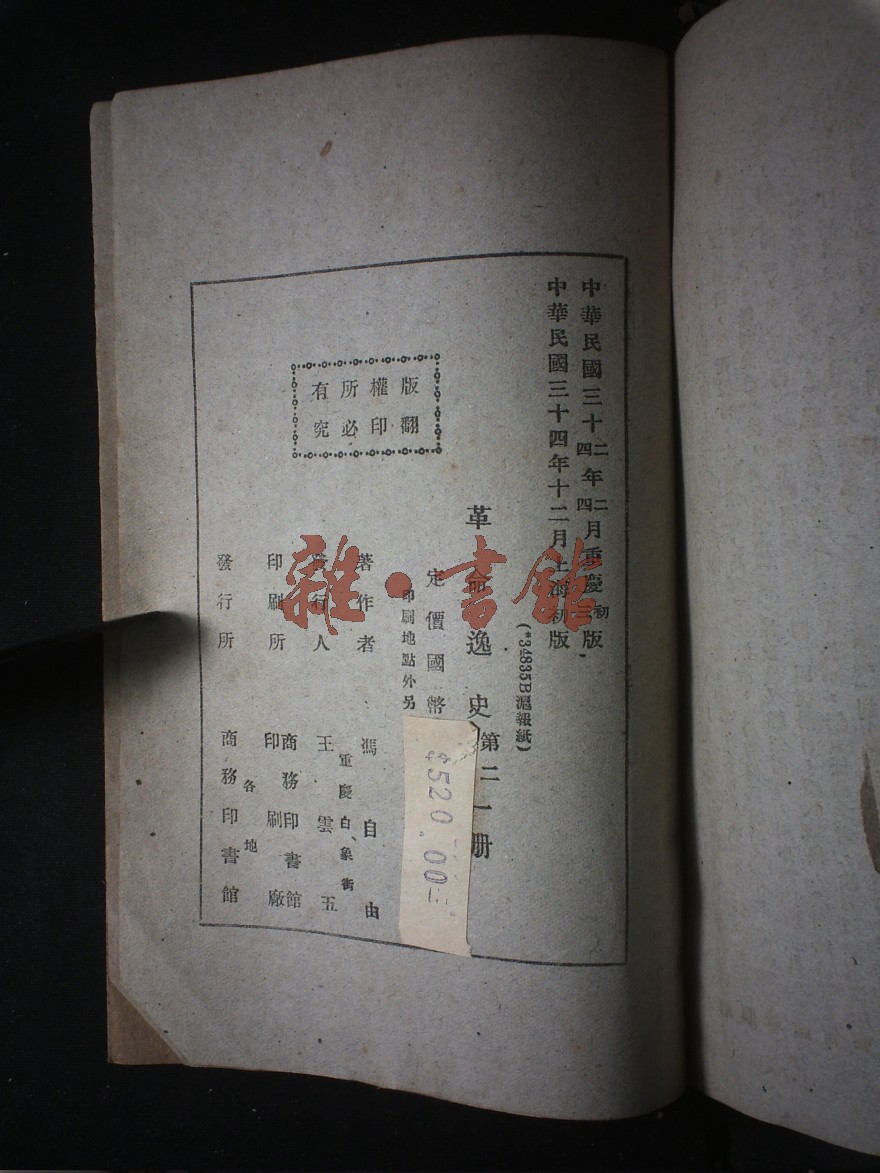 中華民國三十二四年二四月重慶初版
中華民國三十四年十二月上海初版
(*34835B滬報紙)
革命逸史 第二 一册
定價國幣
520.00
印刷地點外另
著作者 馮自由
重慶白象街
發行人 王雲五
印刷所 商務印書館印刷廠
各地
發行所 商務印書館
版權所有
翻印必究
雜·書館